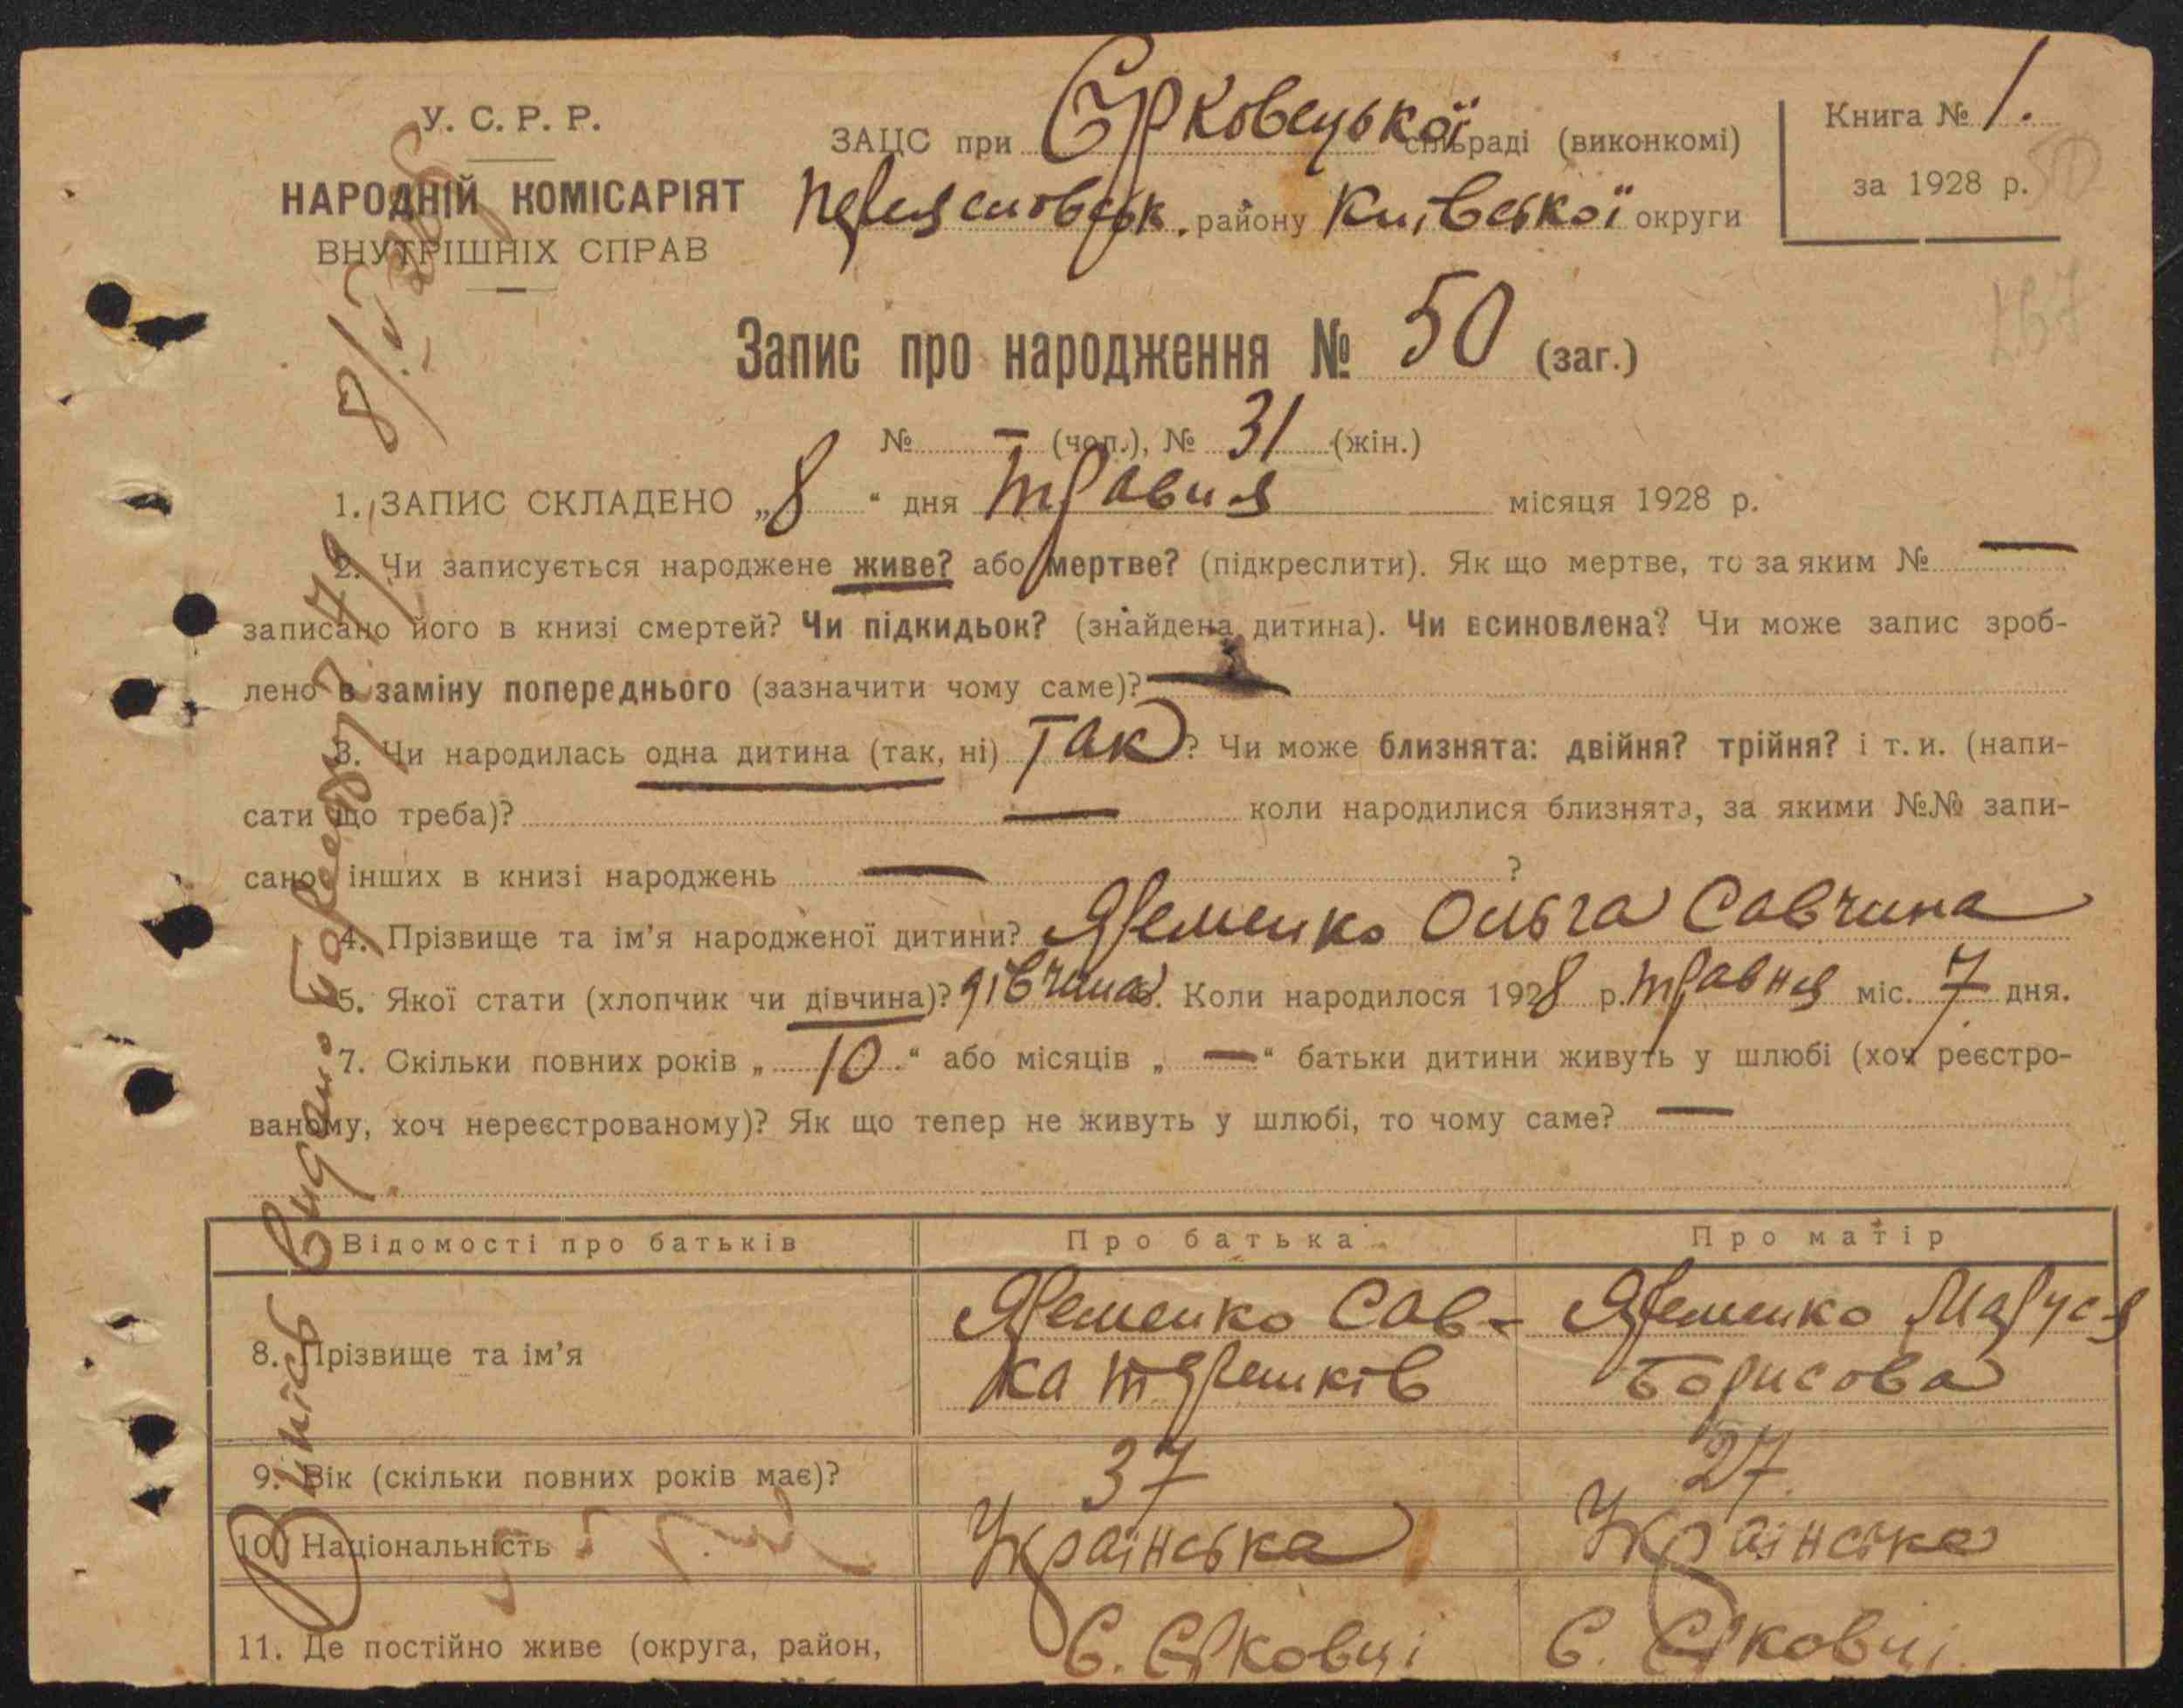 У. С. Р. Р.
НАРОДНІЙ КОМІСАРІЯТ
ВНУТРІШНІХ СПРАВ
ЗАЦС при Єрковецької сільраді (виконкомі)
Переяславськ. району Київської округи
Книга № 1.
за 1928 р.
50
267
Запис про народження № 50 (заг.)
№ — (чол.), № 31 (жін.)
1. ЗАПИС СКЛАДЕНО „8“ дня травня місяця 1928 р.
2. Чи записується народжене живе? або мертве? (підкреслити). Як що мертве, то за яким № —
записано його в книзі смертей? Чи підкидьок? (знайдена дитина). Чи всиновлена? Чи може запис зроб-
лено в заміну попереднього (зазначити чому саме)? —
3. Чи народилась одна дитина (так, ні) Так? Чи може близнята: двійня? трійня? і т. и. (напи-
сати що треба)? — коли народилися близнята, за якими №№ запи-
сано інших в книзі народжень — ?
4. Прізвище та ім’я народженої дитини? Яременко Ольга Савчина
5. Якої стати (хлопчик чи дівчина)? дівчина. Коли народилося 1928 р. травня міс. 7 дня.
7. Скільки повних років „10“ або місяців „—“ батьки дитини живуть у шлюбі (хоч реєстро-
ваному, хоч нереєстрованому)? Як що тепер не живуть у шлюбі, то чому саме? —
Відомості про батьків Про батька Про матір
8. Прізвище та ім’я Яременко Сав- Яременко Маруся
ка Борисова
9. Вік (скільки повних років має)? 37 27
10. Національність Українська Українська
11. Де постійно живе (округа, район, с. Єрковці с. Єрковці
Витяг видано